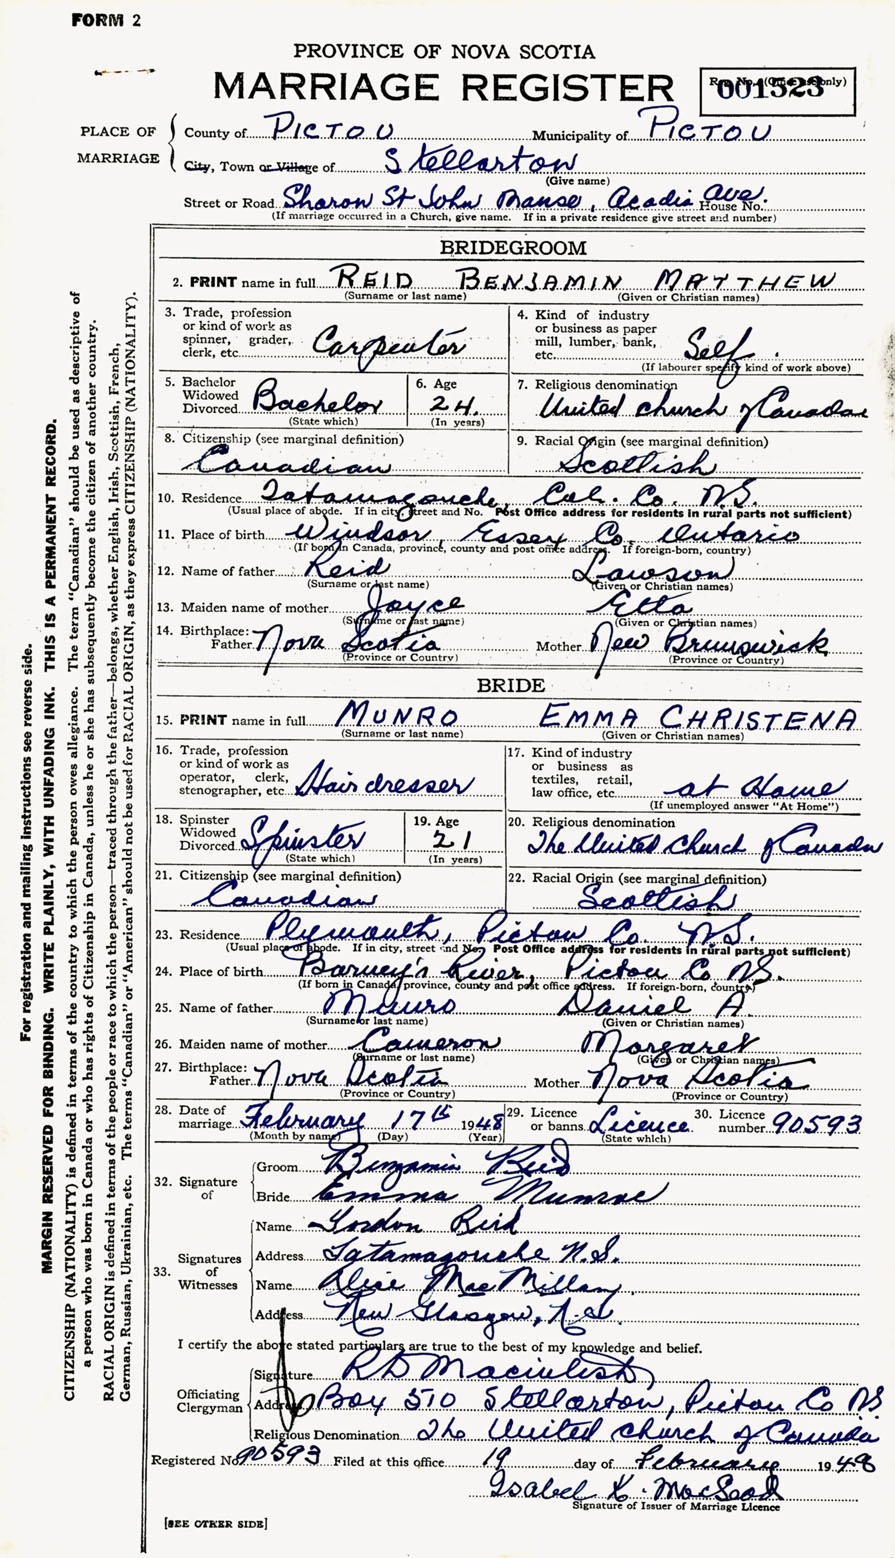 FORM 2
PROVINCE OF NOVA SCOTIA
MARRIAGE REGISTER
Reg. No. (Office use only)
001523
PLACE OF MARRIAGE
County of PICTOU Municipality of PICTOU
City, Town or Village of Stellarton
(Give name)
Street or Road Sharon St John Manse, Acadia Ave. House No.
(If marriage occurred in a Church, give name. If in a private residence give street and number)
BRIDEGROOM
2. PRINT name in full REID BENJAMIN MATTHEW
(Surname or last name) (Given or Christian names)
3. Trade, profession or kind of work as spinner, grader, clerk, etc. Carpenter
4. Kind of industry or business as paper mill, lumber, bank, etc. Self.
(If labourer specify kind of work above)
5. Bachelor Widowed Divorced Bachelor
(State which)
6. Age 24.
(In years)
7. Religious denomination
United church of Canada
8. Citizenship (see marginal definition)
Canadian
9. Racial Origin (see marginal definition)
Scottish
10. Residence Tatamagouche, Col. Co. N.S.
(Usual place of abode. If in city, street and No. Post Office address for residents in rural parts not sufficient)
11. Place of birth Windsor, Essex Co. Ontario
(If born in Canada, province, county and post office address. If foreign-born, country)
12. Name of father Reid Lawson
(Surname or last name) (Given or Christian names)
13. Maiden name of mother Joyce Etta
(Surname or last name) (Given or Christian names)
14. Birthplace: Father Nova Scotia Mother New Brunswick
(Province or Country) (Province or Country)
BRIDE
15. PRINT name in full MUNRO EMMA CHRISTENA
(Surname or last name) (Given or Christian names)
16. Trade, profession or kind of work as operator, clerk, stenographer, etc. Hairdresser
17. Kind of industry or business as textiles, retail, law office, etc. at Home
(If unemployed answer "At Home")
18. Spinster Widowed Divorced Spinster
(State which)
19. Age 21
(In years)
20. Religious denomination
The United Church of Canada
21. Citizenship (see marginal definition)
Canadian
22. Racial Origin (see marginal definition)
Scottish
23. Residence Plymouth, Pictou Co. N.S.
(Usual place of abode. If in city, street and No. Post Office address for residents in rural parts not sufficient)
24. Place of birth Barney's River, Pictou Co N.S.
(If born in Canada, province, county and post office address. If foreign-born, country)
25. Name of father Munro Daniel A.
(Surname or last name) (Given or Christian names)
26. Maiden name of mother Cameron Margaret
(Surname or last name) (Given or Christian names)
27. Birthplace: Father Nova Scotia Mother Nova Scotia
(Province or Country) (Province or Country)
28. Date of marriage February 17th 1948
(Month by name) (Day) (Year)
29. Licence or banns Licence
(State which)
30. Licence number 90593
32. Signature of
Groom Benjamin Reid
Bride Emma Munroe
33. Signatures of Witnesses
Name Gordon Reid
Address Tatamagouche N.S.
Name Alice MacMillan
Address New Glasgow, N.S.
I certify the above stated particulars are true to the best of my knowledge and belief.
Officiating Clergyman
Signature R D Macintosh
Address Box 510 Stellarton, Pictou Co NS
Religious Denomination The United church of Canada
Registered No. 90593 Filed at this office 19 day of February 1948
Isabel K. MacLeod
Signature of Issuer of Marriage Licence
[SEE OTHER SIDE]
For registration and mailing instructions see reverse side.
MARGIN RESERVED FOR BINDING. WRITE PLAINLY, WITH UNFADING INK. THIS IS A PERMANENT RECORD.
CITIZENSHIP (NATIONALITY) is defined in terms of the country to which the person owes allegiance. The term "Canadian" should be used as descriptive of
a person who was born in Canada or who has rights of Citizenship in Canada, unless he or she has subsequently become the citizen of another country.
RACIAL ORIGIN is defined in terms of the people or race to which the person—traced through the father—belongs, whether English, Irish, Scottish, French,
German, Russian, Ukrainian, etc. The terms "Canadian" or "American" should not be used for RACIAL ORIGIN, as they express CITIZENSHIP (NATIONALITY).